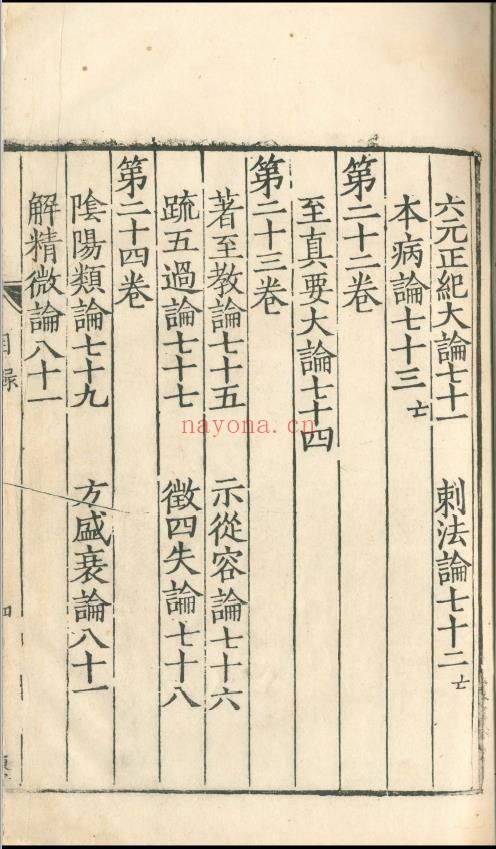 六元正紀大論七十一 刺法論七十二 亡
本病論七十三 亡
第二十二卷
至真要大論七十四
第二十三卷
著至教論七十五 示從容論七十六
䟽五過論七十七 徵四失論七十八
第二十四卷
隂陽類論七十九 方盛衰論八十一
解精微論八十一
目録
四
nayona.cn